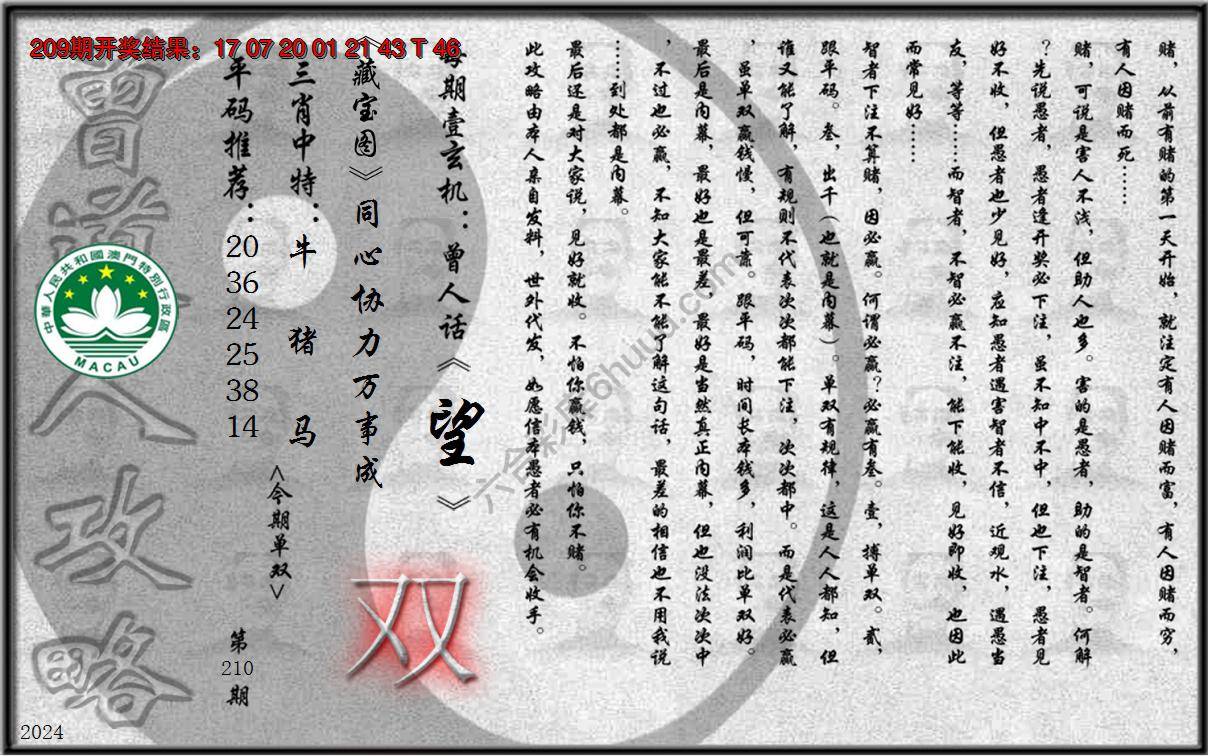 209期开奖结果：17 07 20 01 21 43 T 46
赌，从前有赌的第一天开始，就注定有人因赌而富，有人因赌而穷，
有人因赌而死……
赌，可说是害人不浅，但助人也多。害的是愚者，助的是智者。何解
？先说愚者，愚者逢开奖必下注，虽不知中不中，但也下注，愚者见
好不收，但愚者也少见好，应知愚者遇害智者不信，近观水，遇愚当
友，等等……而智者，不智必赢不注，能下能收，见好即收，也因此
而常见好……
智者下注不算赌，因必赢。何谓必赢？必赢有叁。壹，搏单双。贰，
跟平码。叁，出千（也就是内幕）。单双有规律，这是人人都知，但
谁又能了解，有规则不代表次次都能下注，次次都中。而是代表必赢
，虽单双赢钱慢，但可靠。跟平码，时间长本钱多，利润比单双好。
最后是内幕，最好也是最差，最好是当然真正内幕，但也没法次次中
，不过也必赢，不知大家能不能了解这句话，最差的相信也不用我说
……到处都是内幕。
最后还是对大家说，见好就收。不怕你赢钱，只怕你不赌。
此攻略由本人亲自发料，世外代发，如愿信本愚者必有机会收手。
每期壹玄机：曾人话《望》
《藏宝图》同心协力万事成
三肖中特：牛 猪 马
平码推荐：20 36 24 25 38 14
<今期单双>
双
第210期
曾道人攻略
中華人民共和國澳門特別行政區
MACAU
六合彩库6huuu.com
2024